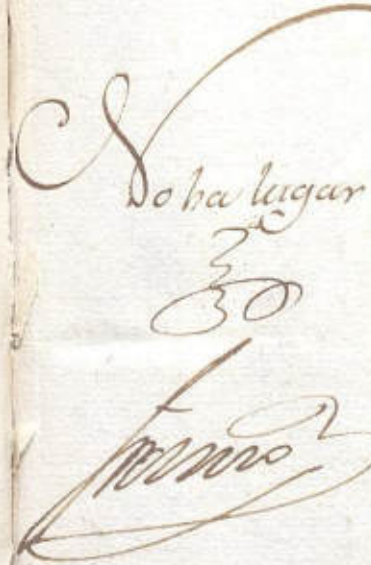 No ha lugar